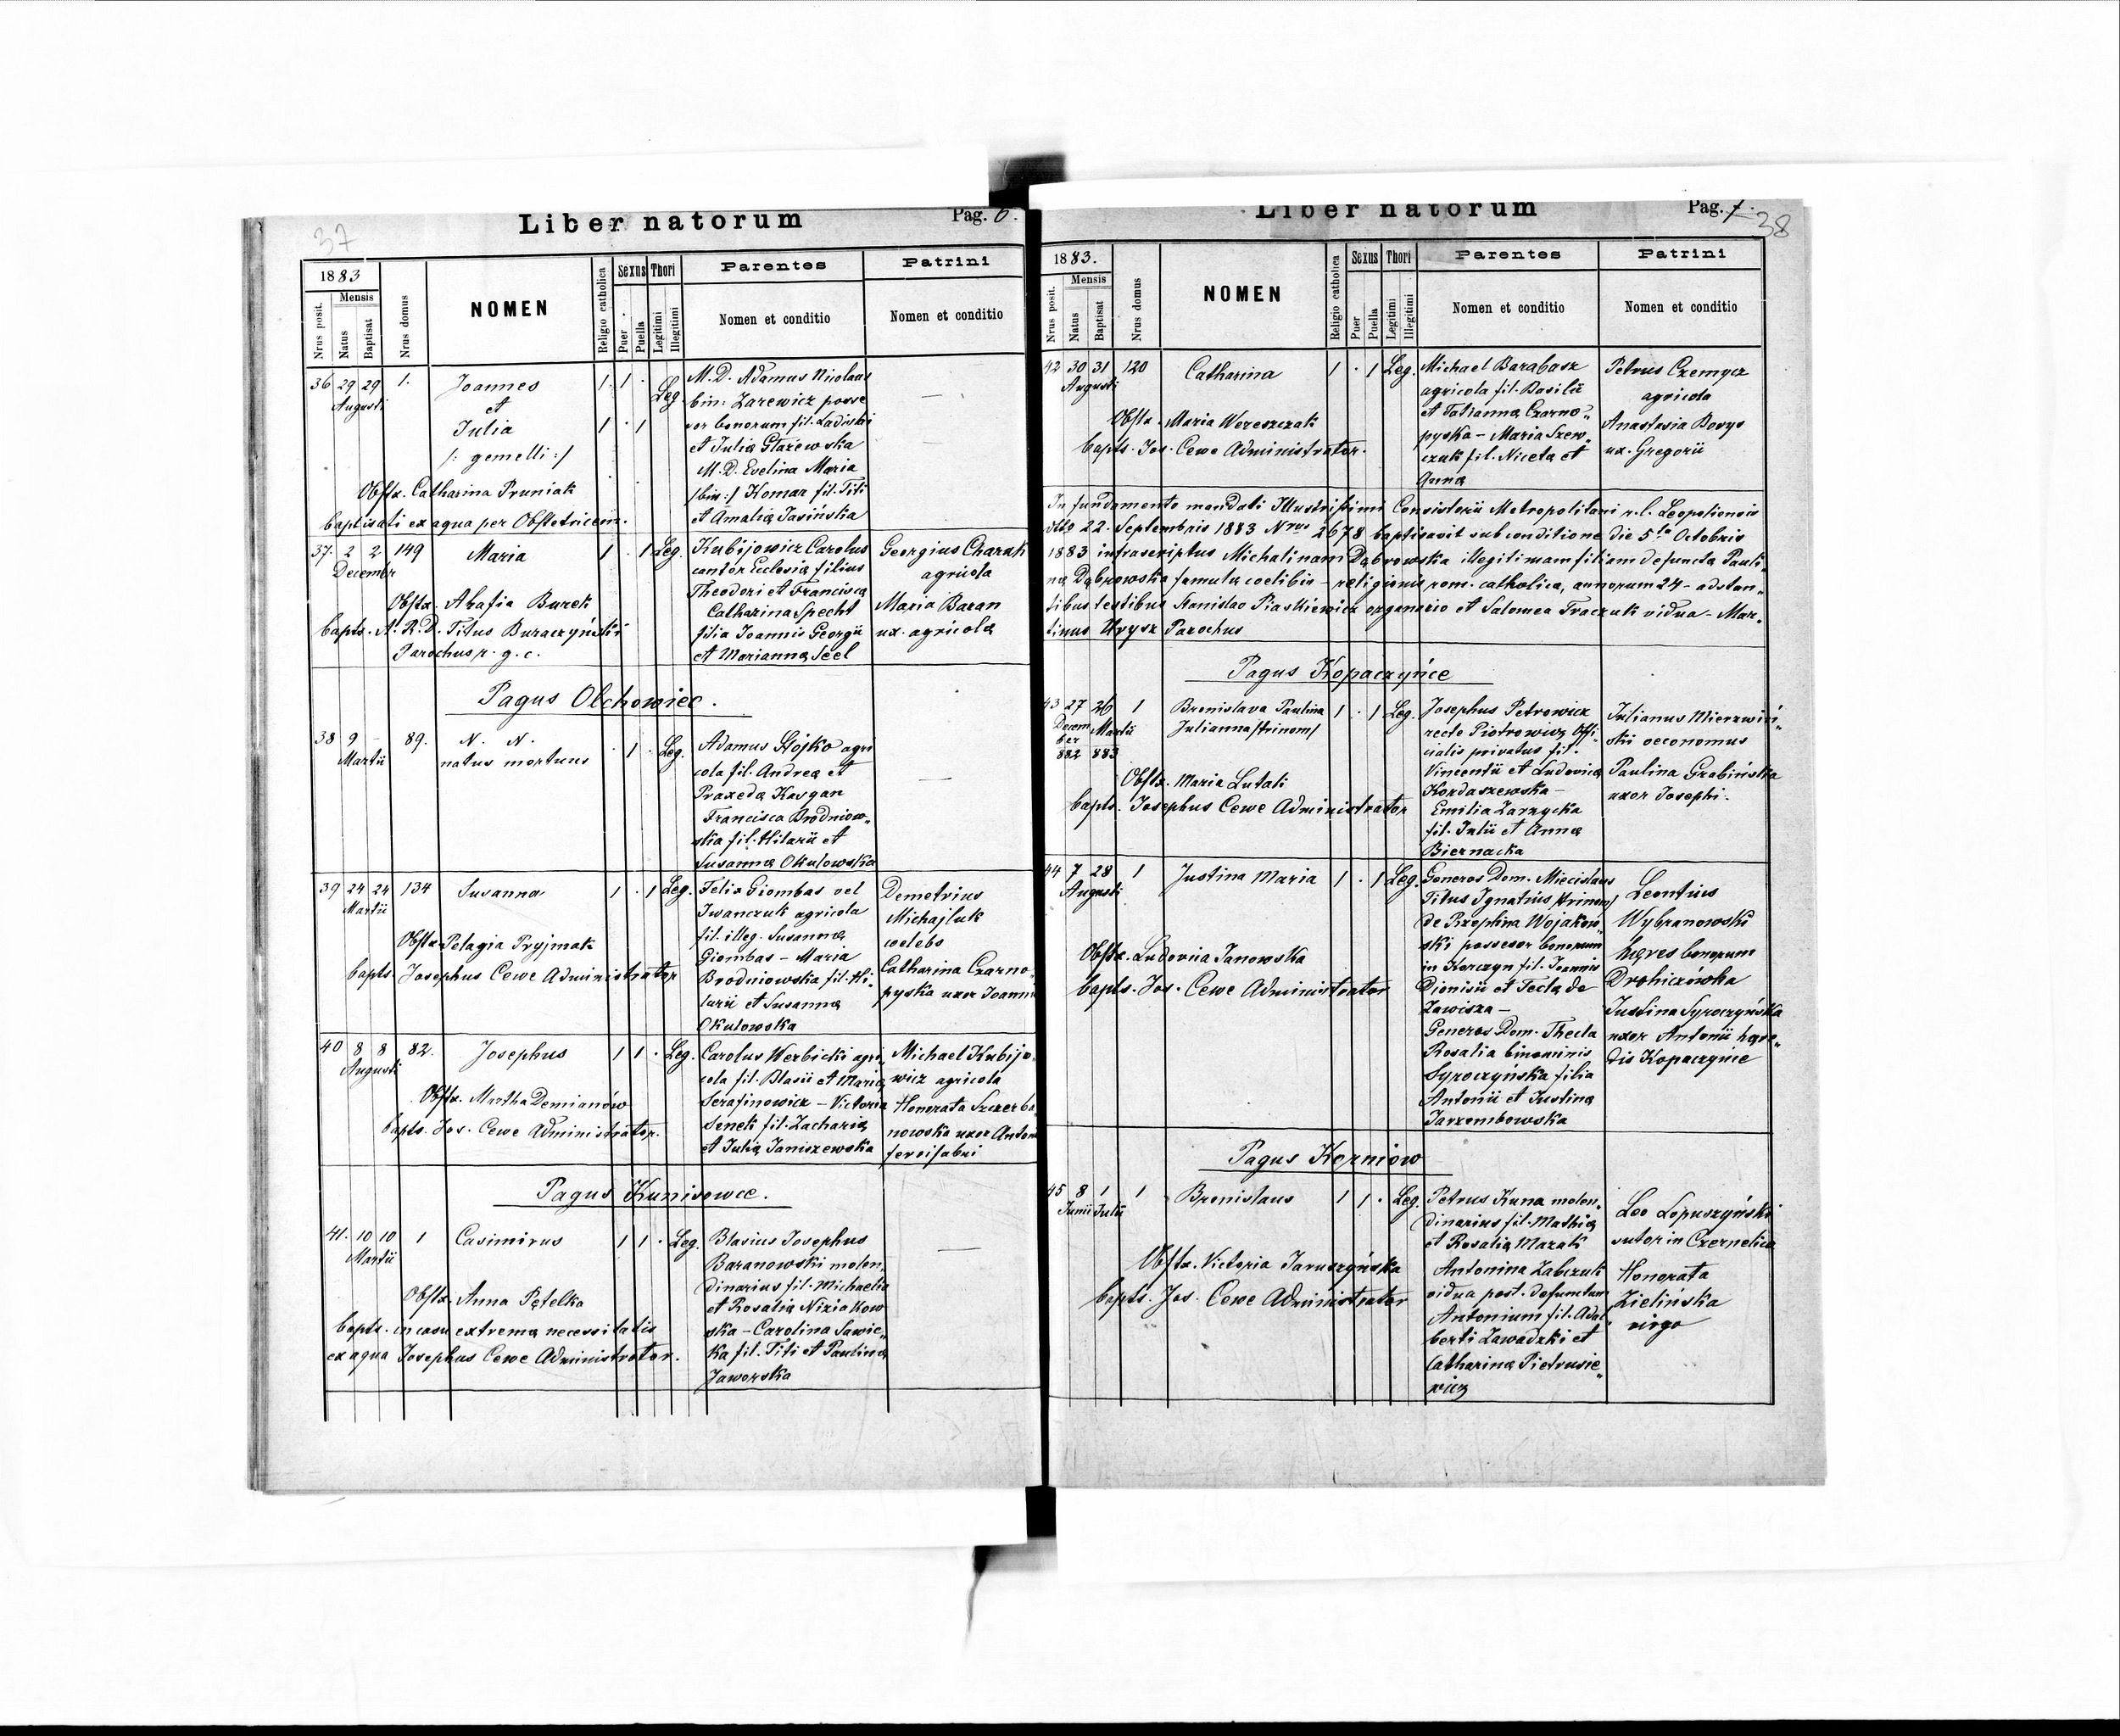 37
Liber natorum Pag. 6.
1883
Nrus posit.
Mensis
Natus
Baptisat
Nrus domus
NOMEN
Religio catholica
Sexus
Puer
Puella
Thori
Legitimi
Illegitimi
Parentes
Nomen et conditio
Patrini
Nomen et conditio
36 29 29 Augusti 1.
Joannes
et
Julia
/: gemelli :/
Obstx. Catharina Pruniak
baptisati ex aqua per Obstetricem.
1 1 .
1 . 1
Leg.
M. D. Adamus Nicolaus
bin: Zarewicz posse
sor bonorum fil. Ladislai
et Julia Głażewska
M. D. Evelina Maria
/bin:/ Komar fil. Titi
et Amalia Jasińska
—
—
37. 2 2 Decembr 149
Maria
Obstx. Ahafia Burek
bapts. A. R. D. Titus Buraczyński
Parochus r. g. c.
1 . 1 Leg.
Kubijowicz Carolus
cantor Ecclesiæ filius
Theodori et Francisca
Catharina Specht
filia Joannis Georgii
et Marianna Seel
Georgius Charuk
agricola
Maria Baran
ux. agricolæ
Pagus Olchowiec.
38 9 - Martii 89.
N. N.
natus mortuus
. 1 . Leg.
Adamus Stojko agri
cola fil. Andreæ et
Praxeda Kavgan
Francisca Brodniow„
ska fil. Hilarii et
Susanna Okulowska
—
39 24 24 Martii 134
Susanna
Obstx. Pelagia Pryjmak
bapts. Josephus Cewe Administrator
1 . 1 Leg.
Felix Giombas vel
Iwanczuk agricola
fil. illeg. Susanna
Giombas – Maria
Brodniowska fil. Hi„
larii et Susanna
Okulowska
Demetrius
Michajluk
welebs
Catharina Czarno„
pyska uxor Joannis
40 8 8 Augusti 82.
Josephus
Obstx. Martha Demianów
bapts. Jos. Cewe Administrator.
1 1 . Leg.
Carolus Werbicki agri„
cola fil. Blasii et Maria
Serafinowicz – Victoria
Senek fil. Zacharia
et Julia Janiszewska
Michael Kubijo„
wicz agricola
Honorata Szczerba
nowska uxor Antoni
Pagus Kunisowce.
41. 10 10 Martii 1
Casimirus
Obstx. Anna Pętelka
bapts. in casu extrema necessitatis
ex aqua Josephus Cewe Administrator.
1 1 . Leg.
Blasius Josephus
Baranowski molen„
dinarius fil. Michaelis
et Rosalia Niziakow
ska – Carolina Sawic„
ka fil. Titi et Paulina
Jaworska
—
Liber natorum Pag. 7.
38
1883.
Nrus posit.
Mensis
Natus
Baptisat
Nrus domus
NOMEN
Religio catholica
Sexus
Puer
Puella
Thori
Legitimi
Illegitimi
Parentes
Nomen et conditio
Patrini
Nomen et conditio
42 30 31 Augusti 120
Catharina
Obstx. Maria Wereszczak
bapts. Jos. Cewe Administrator.
1 . 1 Leg.
Michael Barabasz
agricola fil. Basilii
et Tatianna Czarno„
pyska – Maria Szew„
czuk fil. Niceta et
Anna
Petrus Czemycz
agricola
Anastasia Borys
ux. Gregorii
In fundamento mandati Illustrissimi Consistorii Metropolitani r. l. Leopoliensis
ddto 22. Septembris 1883 Nrus 2678 baptisavit sub conditione die 5ta Octobris
1883 infrascriptus Michalinam Dąbrowska illegitimam filiam defuncta Pauli„
na Dąbrowska famula coelibis – religionis rom. catholica, annorum 24 – adstan„
tibus testibus Stanislao Piaskiewicz organario et Salomea Traczuk vidua – Mar„
tinus Urysz Parochus
Pagus Kopaczyńce
43 27 26 1
Decem Martii
ber
882 883
Bronislava Paulina
Julianna /trinom/
Obstx. Maria Lutali
bapts. Josephus Cewe Administrator
1 . 1 Leg.
Josephus Petrowicz
recte Piotrowicz Offi„
cialis privatus fil.
Vincentii et Ludovica
Kordaszewska –
Emilia Zarzycka
fil. Julii et Anna
Biernacka
Julianus Mierzwiń„
ski oeconomus
Paulina Grabińska
uxor Josephi.
44 7 28 Augusti 1
Justina Maria
Obstx. Ludovica Janowska
bapts. Jos. Cewe Administrator
1 . 1 Leg.
Generos Dom. Miecislaus
Titus Ignatius /trinom/
de Rzeplina Wojakow„
ski possesor bonorum
in Korczyn fil. Joannis
Dionisii et Tecla de
Zawisza –
Generos Dom. Thecla
Rosalia binominis
Syroczyńska filia
Antonii et Justina
Jarzembowska
Leontius
Wybranowski
hæres bonorum
Drohiczówka
Justina Syroczyńska
uxor Antonii hære„
dis Kopaczynce
Pagus Korniów
45 8 1 1
Junii Julii
Bronislaus
Obstx. Victoria Jaruszyńska
bapts. Jos. Cewe Administrator
1 1 . Leg.
Petrus Kuna molen„
dinarius fil. Mathia
et Rosalia Mazak
Antonina Zabczuk
vidua post. defunctum
Antonium fil. Adal„
berti Zawadzki et
Catharina Pietrusie„
wicz
Leo Łopuszyński
sutor in Czernelica
Honorata
Zielińska
virgo